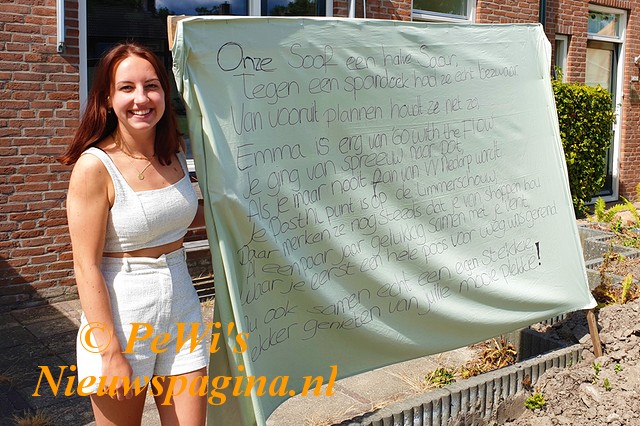 Onze Soof een halve Spaar,
Tegen een spandoek had ze echt bezwaar
Van vooruit plannen houdt ze net zo,
Emma is erg van 'Go with the Flow'
Je ging van spreeuw naar pot,
Als je maar nooit Aan van Wilgarp wordt
Je past nl. punt is op de Lummerschouw
Daar merken ze nog steeds dat je van shoppen hou
Al een paar jaar gelukkig samen met je vent,
Waar je eerst een hele poos voor weg was gerend
Nu ook samen echt een eigen stekkie
lekker genieten van jullie mooie plekkie!
© PeWi's
Nieuwspagina.nl